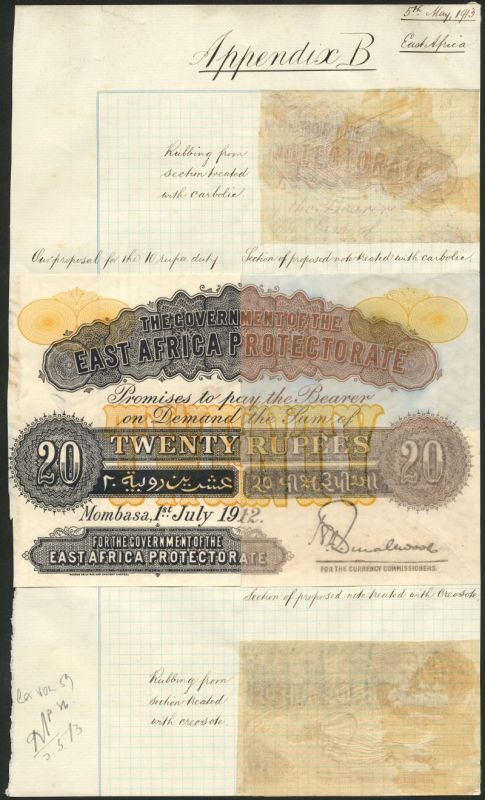 5th May, 1913
East Africa
Appendix B
Rubbing from
section treated
with carbolic.
PROTECTORATE
the Bearer
Sum of
Our proposal for the 10 rupee duty
Section of proposed note treated with carbolic.
THE GOVERNMENT OF THE
EAST AFRICA PROTECTORATE
Promises to pay the Bearer
on Demand the Sum of
TWENTY RUPEES
20
20
٢٠ عشرين روبية
૨૦ વીસ રૂપીઆ
Mombasa, 1st July 1912.
FOR THE GOVERNMENT OF THE
EAST AFRICA PROTECTORATE
FOR THE CURRENCY COMMISSIONERS.
Section of proposed note treated with Creosote
Rubbing from
section treated
with creosote.